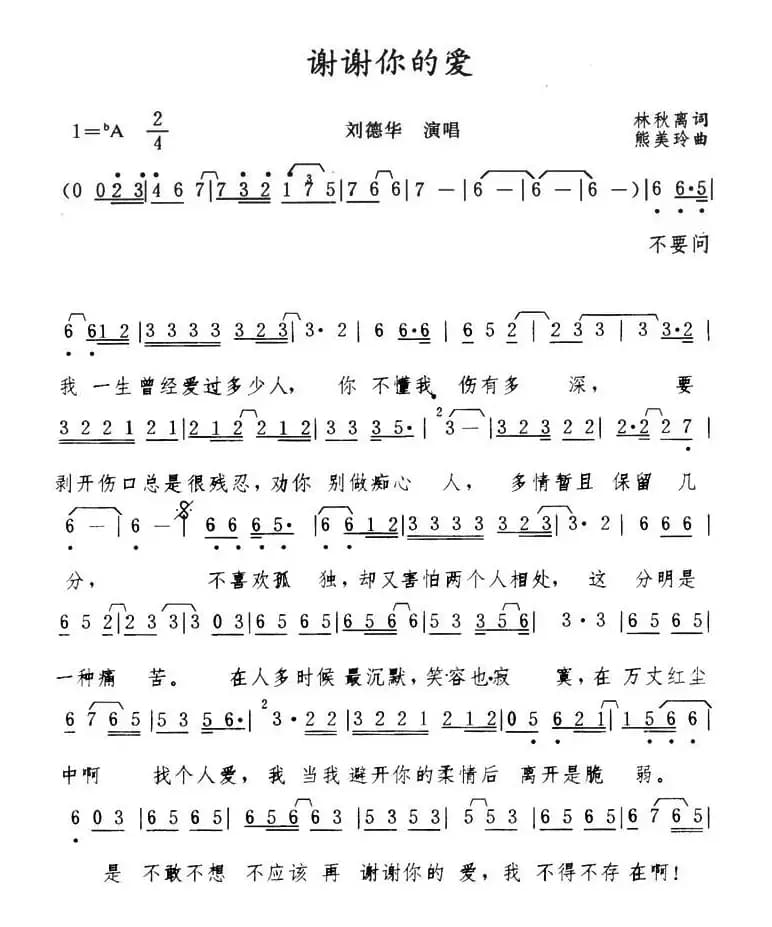 谢谢你的爱
1=ᵇA 2/4 刘德华 演唱 林秋离词
熊美玲曲
(0 023|467|732 175|766|7 —|6 —|6 —|6 —)|6 6·5|
不要问
6 612|3333 323|3·2|6 6·6|652|233|3 3·2|
我 一生曾经爱过多少人, 你 不懂我 伤有多 深, 要
3221 21|212 212|3335·|²3 —|22323 22|2·227|
剥开伤口总是很残忍,劝你 别做痴心 人, 多情暂且 保留 几
6 —|6 —|66 65·|6612|3333 323|3·2|666|
分, 不喜欢孤 独,却又害怕两个人相处, 这 分明是
652|233|303|6565|6565|6 656|3 356|3·3|6565|
一种痛 苦。 在人多时候最沉默,笑容也寂 寞,在 万丈红尘
6765|535 56·|²3·22|3221 212|212|05 621|1566|
中啊 找个人爱,我 当我避开你的柔情后 离开是脆 弱。
603|6565|6 6563|5353|523|5565|6765|
是 不敢不想 不应该 再 谢谢你的 爱,我 不得不存在啊!